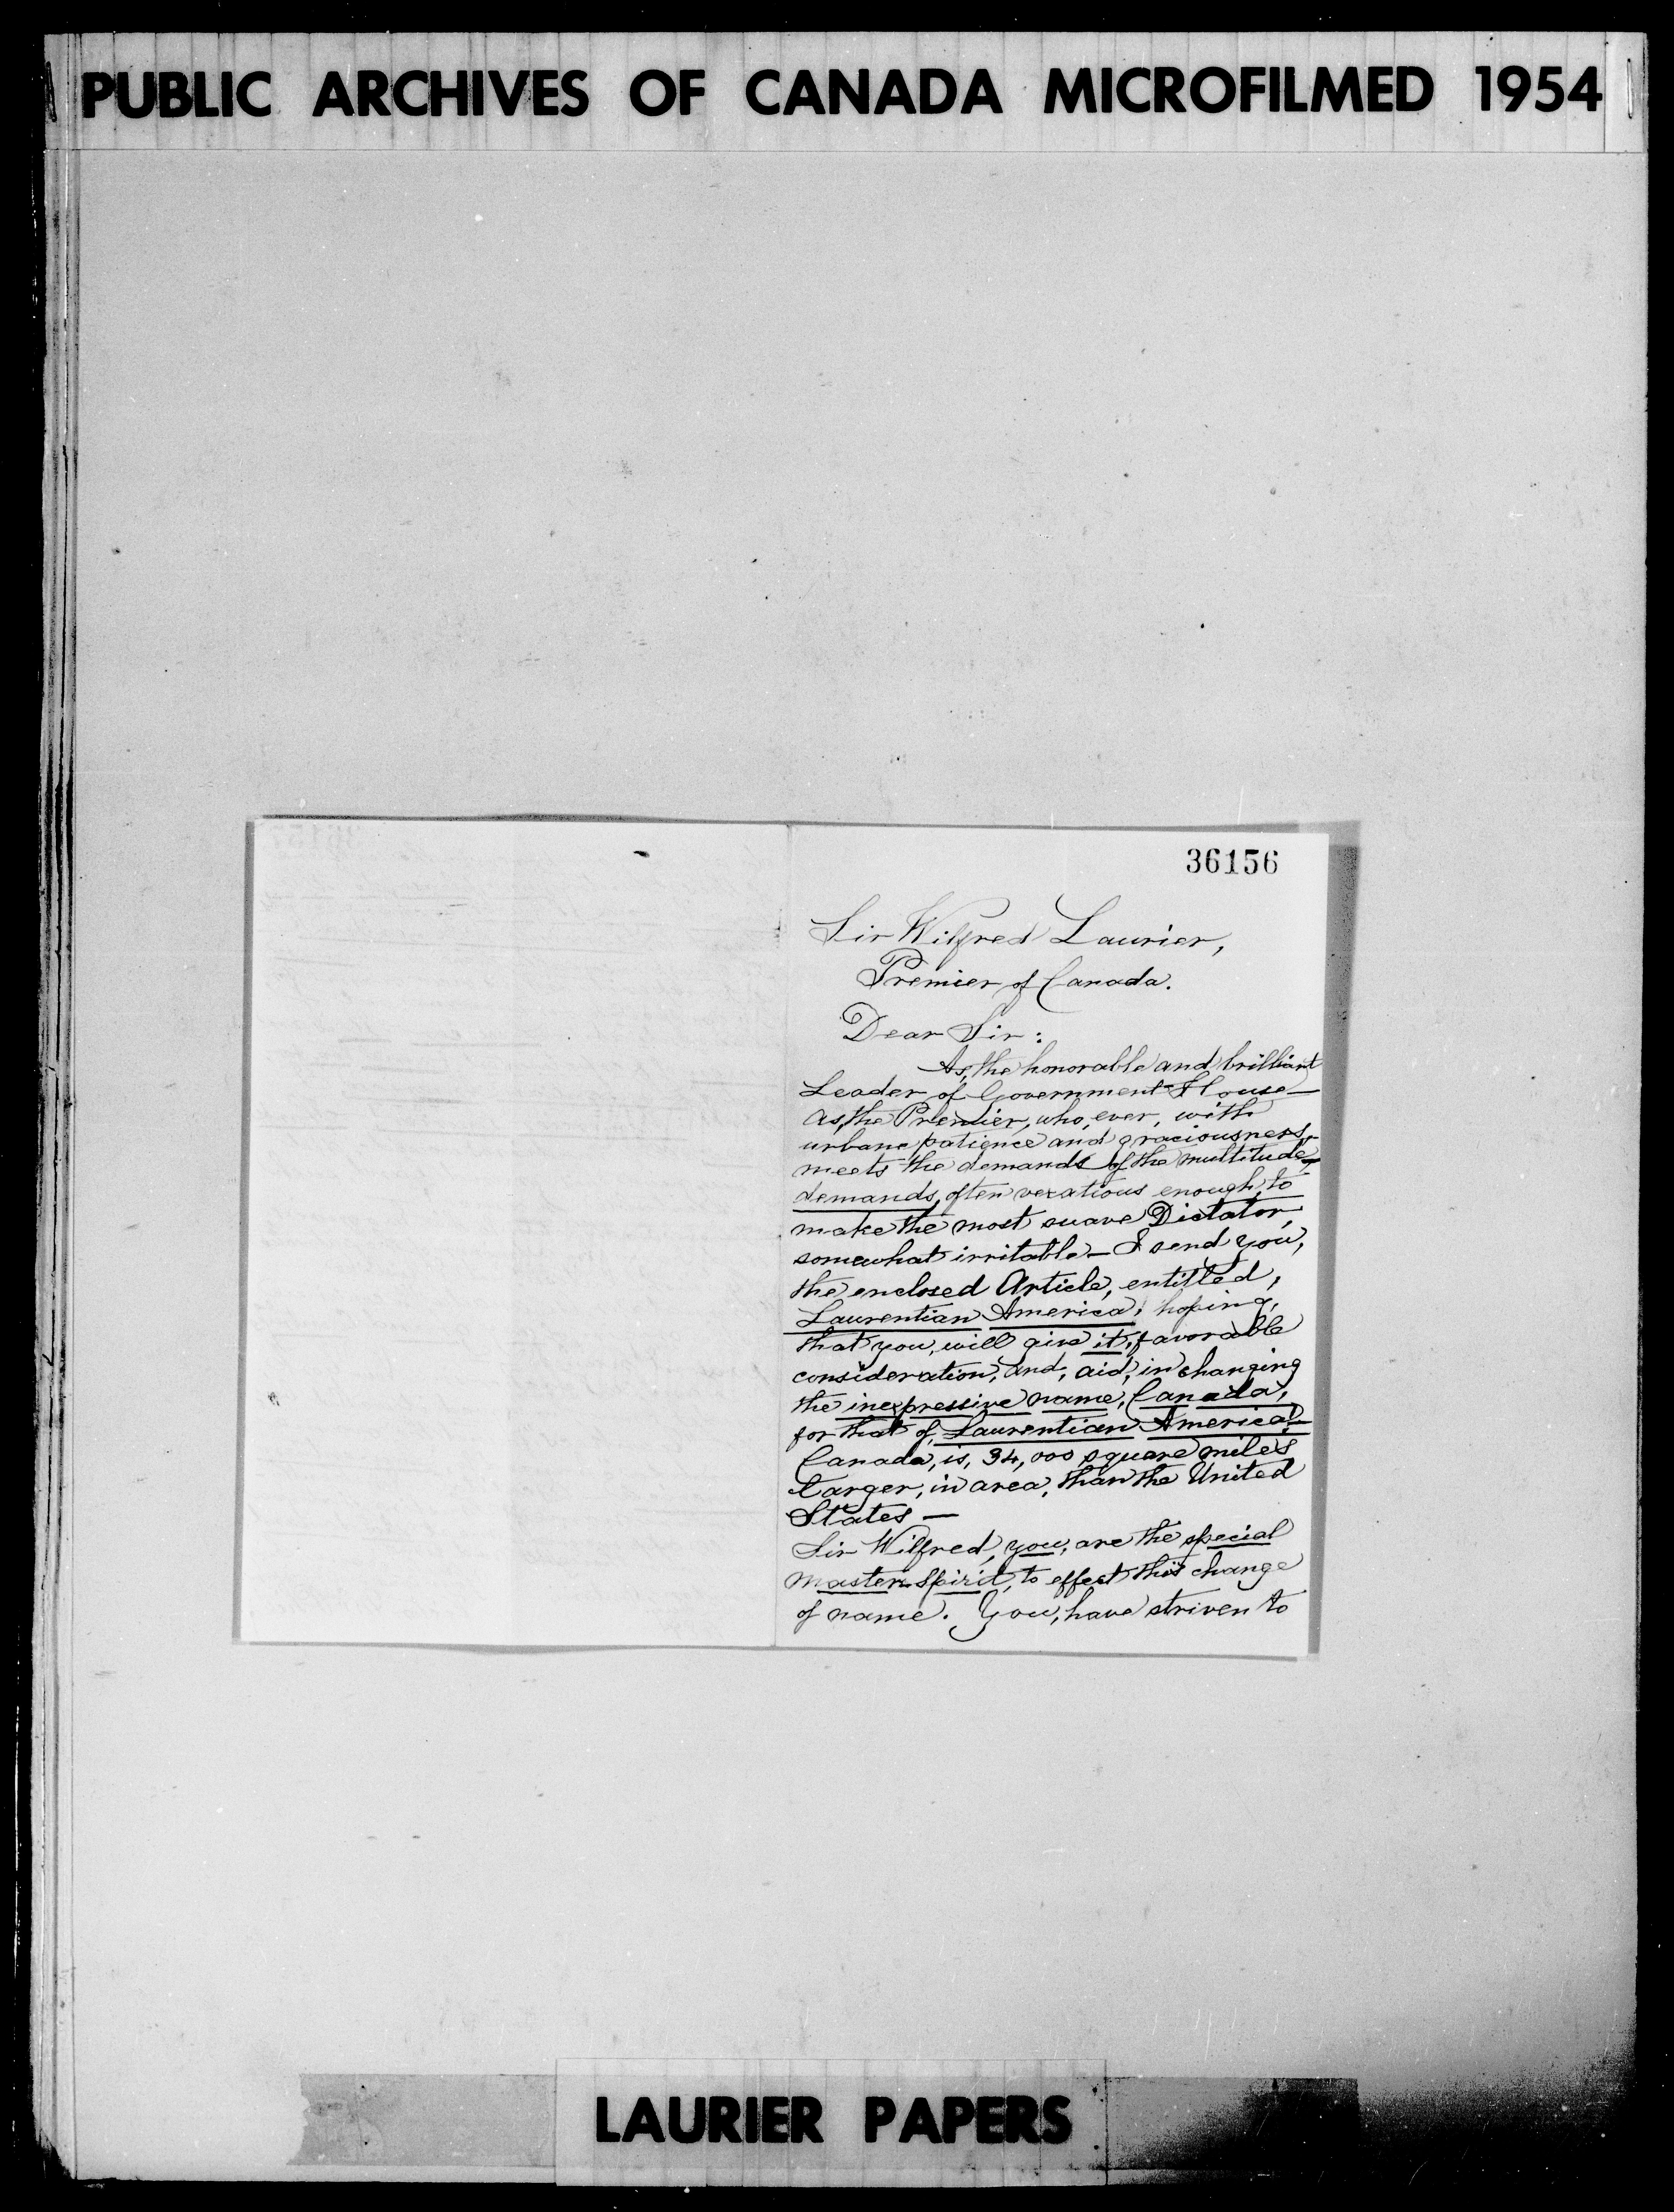 PUBLIC ARCHIVES OF CANADA MICROFILMED 1954
36156
Sir Wilfred Laurier,
Premier of Canada.
Dear Sir:
As, the honorable and brilliant
Leader of Government House—
as, the Premier, who, ever, with
urbane patience and graciousness,
meets the demands of the multitude,—
demands, often vexatious enough, to
make the most suave Dictator,
somewhat irritable— I send you,
the enclosed Article, entitled,
Laurentian America, hoping,
that you, will give it, favorable
consideration, and, aid, in changing
the inexpressive name, Canada,
for that of, Laurentian America,—
Canada, is, 34,000 square miles
larger, in area, than the United
States —
Sir Wilfred, you, are the special
Master Spirit, to effect this change
of name. You, have striven to
LAURIER PAPERS